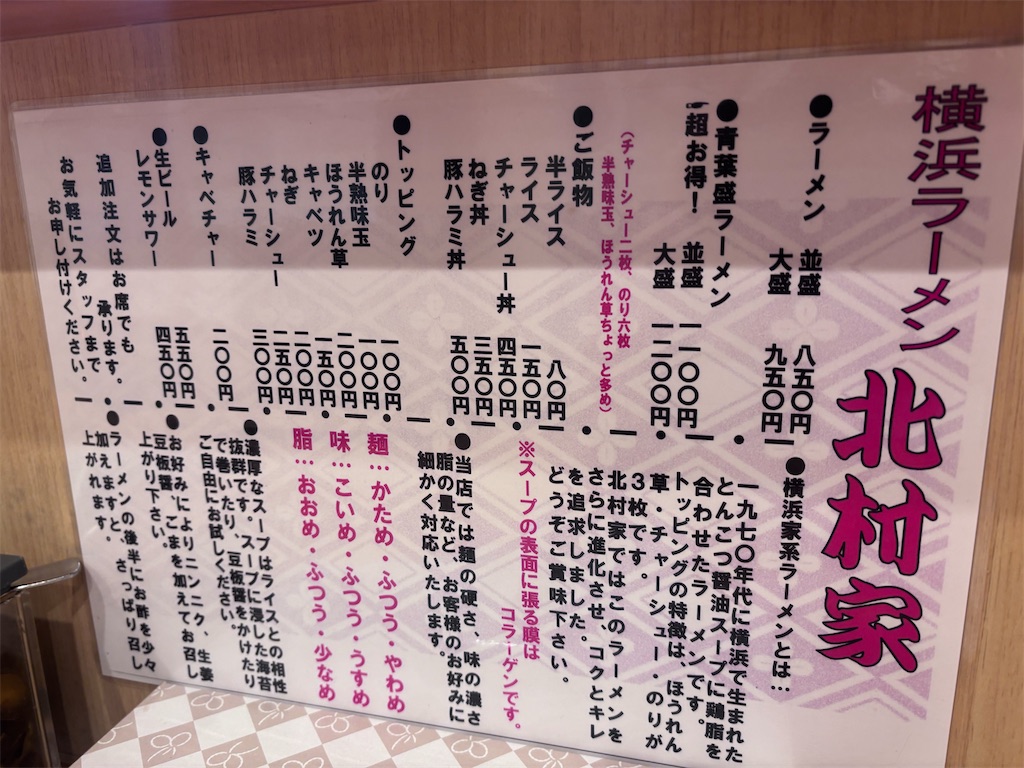 横浜ラーメン 北村家
●ラーメン 並盛 八五〇円
大盛 九五〇円
●青葉盛ラーメン
超お得! 並盛 一一〇〇円
大盛 一二〇〇円
(チャーシュー二枚、のり六枚
半熟味玉、ほうれん草ちょっと多め)
●ご飯物
半ライス 八〇円
ライス 一五〇円
チャーシュー丼 四五〇円
ねぎ丼 三五〇円
豚ハラミ丼 五〇〇円
●トッピング
のり 一〇〇円
半熟味玉 一〇〇円
ほうれん草 二〇〇円
キャベツ 一五〇円
ねぎ 二〇〇円
チャーシュー 二五〇円
豚ハラミ 三〇〇円
●キャベチャー 二〇〇円
●生ビール 五五〇円
レモンサワー 四五〇円
追加注文はお席でも
承ります。
お気軽にスタッフまで
お申し付けください。
●横浜家系ラーメンとは…
一九七〇年代に横浜で生まれた
とんこつ醤油スープに鶏脂を
合わせたラーメンです。
トッピングの特徴は、ほうれん
草・チャーシュー・のりが
3枚です。
北村家ではこのラーメンを
さらに進化させ、コクとキレ
を追求しました。
どうぞご賞味下さい。
※スープの表面に張る膜は
コラーゲンです。
●当店では麺の硬さ、味の濃さ
脂の量など、お客様のお好みに
細かく対応いたします。
麺…かため・ふつう・やわめ
味…こいめ・ふつう・うすめ
脂…おおめ・ふつう・少なめ
●濃厚なスープはライスとの相性
抜群です。スープに浸した海苔
で巻いたり、豆板醤をかけたり
ご自由にお試しください。
●お好みによりニンニク、生姜
豆板醤、ごまを加えてお召し
上がり下さい。
●ラーメンの後半にお酢を少々
加えますと、さっぱり召し
上がれます。